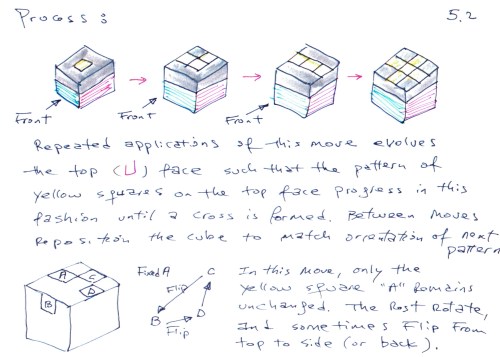 Process: 5.2
Front Front Front
Repeated applications of this move evolves
the top (U) face such that the pattern of
yellow squares on the top face progress in this
fashion until a cross is formed. Between moves
reposition the cube to match orientation of next
pattern
A C D B
Fixed A C
Flip
B D
Flip
In this move, only the
yellow square "A" remains
unchanged. The Rest Rotate,
and sometimes Flip from
top to side (or back).